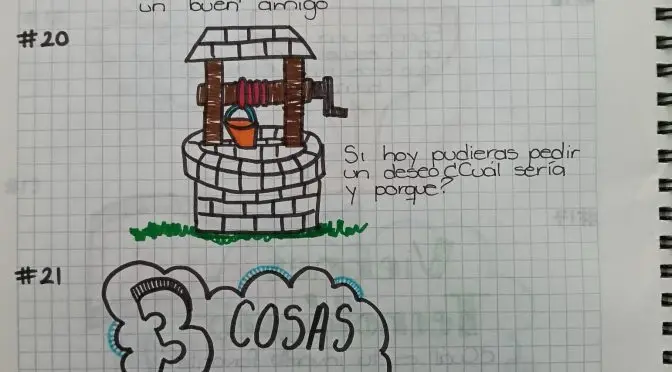 un buen amigo
#20
Si hoy pudieras pedir
un deseo ¿Cuál sería
y porque?
#21
3 COSAS